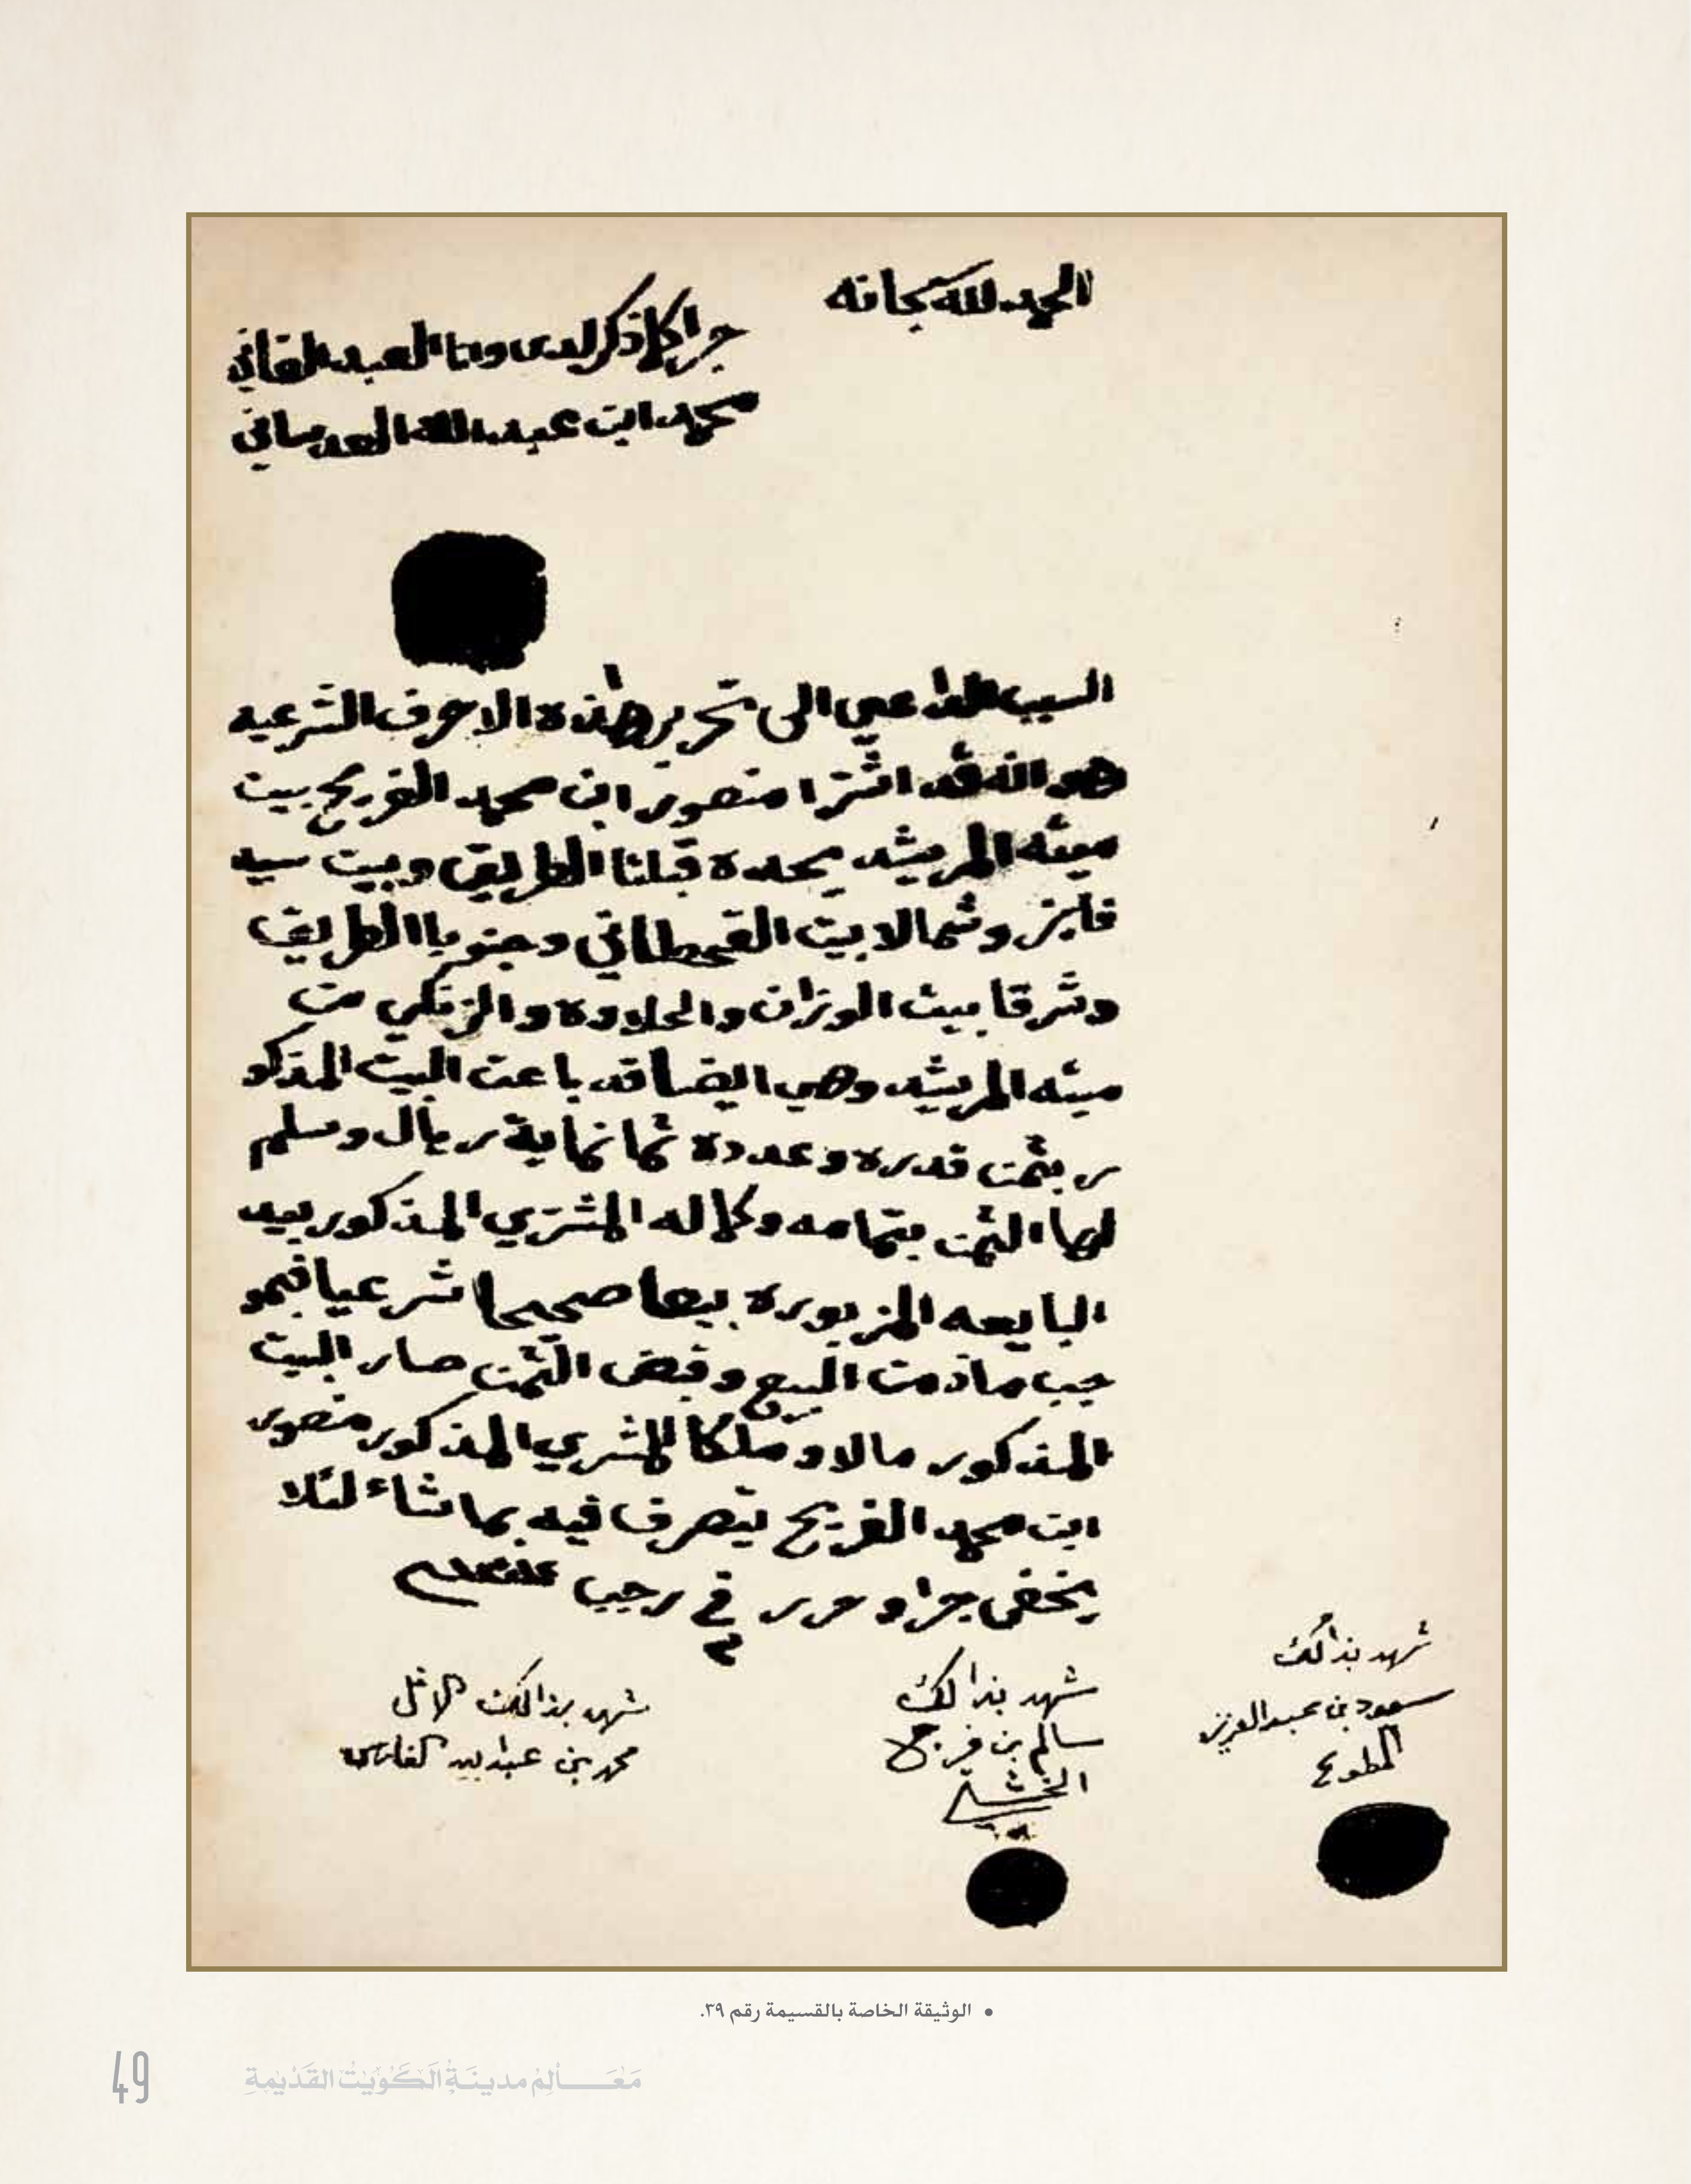 الحمد لله سبحانه
جرا كلما ذكر لدي وانا العبد الفاني
محمد ابن عبد الله العدساني
السبب الداعي الى تحرير هذه الاحرف الشرعيه
هو انه قد اشترا منصور ابن محمد الفريح بيت
ميثه المريشد يحده قبلتا الطريق وبيت سيد
فايز وشمالا بيت القحطاني وجنوبا الطريق
وشرقا بيت الوزان والحلاوه والزنكي من
ميثه المريشد وهي ايضا قد باعت البيت المذكو
ر بثمن قدره وعدده ثمانماية ريال وسلم
لها الثمن بتمامه وكماله المشتري المذكور بيد
البايعه المزبوره بيعا صحيحا شرعيا فبمو
جب ماذمن البيع وقبض الثمن صار البيت
المذكور مالا وملكا للمشري المذكور منصور
ابن محمد الفريح يتصرف فيه بما شاء لئلا
يخفى جرا وحرر في رجب
شهد بذالك
سعود بن عبدالعزيز
المطوع
شهد بذالك
سالم بن فريح
شهد بذالك الاقل
محمد بن عبدالله الفارس
• الوثيقة الخاصة بالقسيمة رقم ٣٩.
مَعَالِم مدينَة الكُوَيت القَدِيمةِ
49